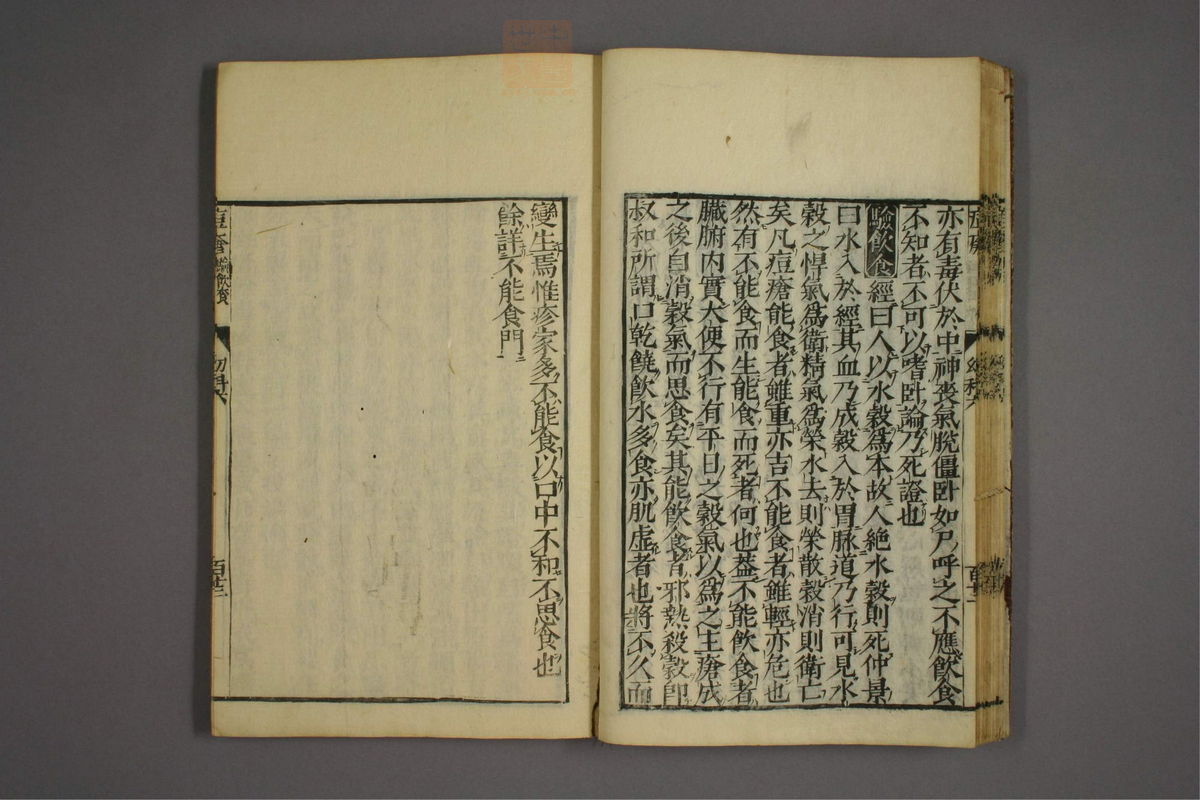 亦有毒伏於中神喪氣脫僵卧如尸呼之不應飲食
不知者不可以嗜卧論乃死證也
驗飲食經曰人以水穀爲本故人絶水穀則死仲景
曰水入於經其血乃成穀入於胃脉道乃行可見水
穀之悍氣爲衛精氣爲榮水去則榮散穀消則衛亡
矣凡痘瘡能食者雖重亦吉不能食者雖輕亦危也
然有不能食而生能食而死者何也蓋不能飲食者
臟腑内實大便不行有平日之穀氣以爲之主瘡成
之後自消穀氣而思食矣其能飲食者邪熱殺穀即
叔和所謂口乾饒飲水多食亦肌虛者也將不久而
變生焉惟疹家多不能食以口中不和不思食也
餘詳不能食門
幼科
百廿三